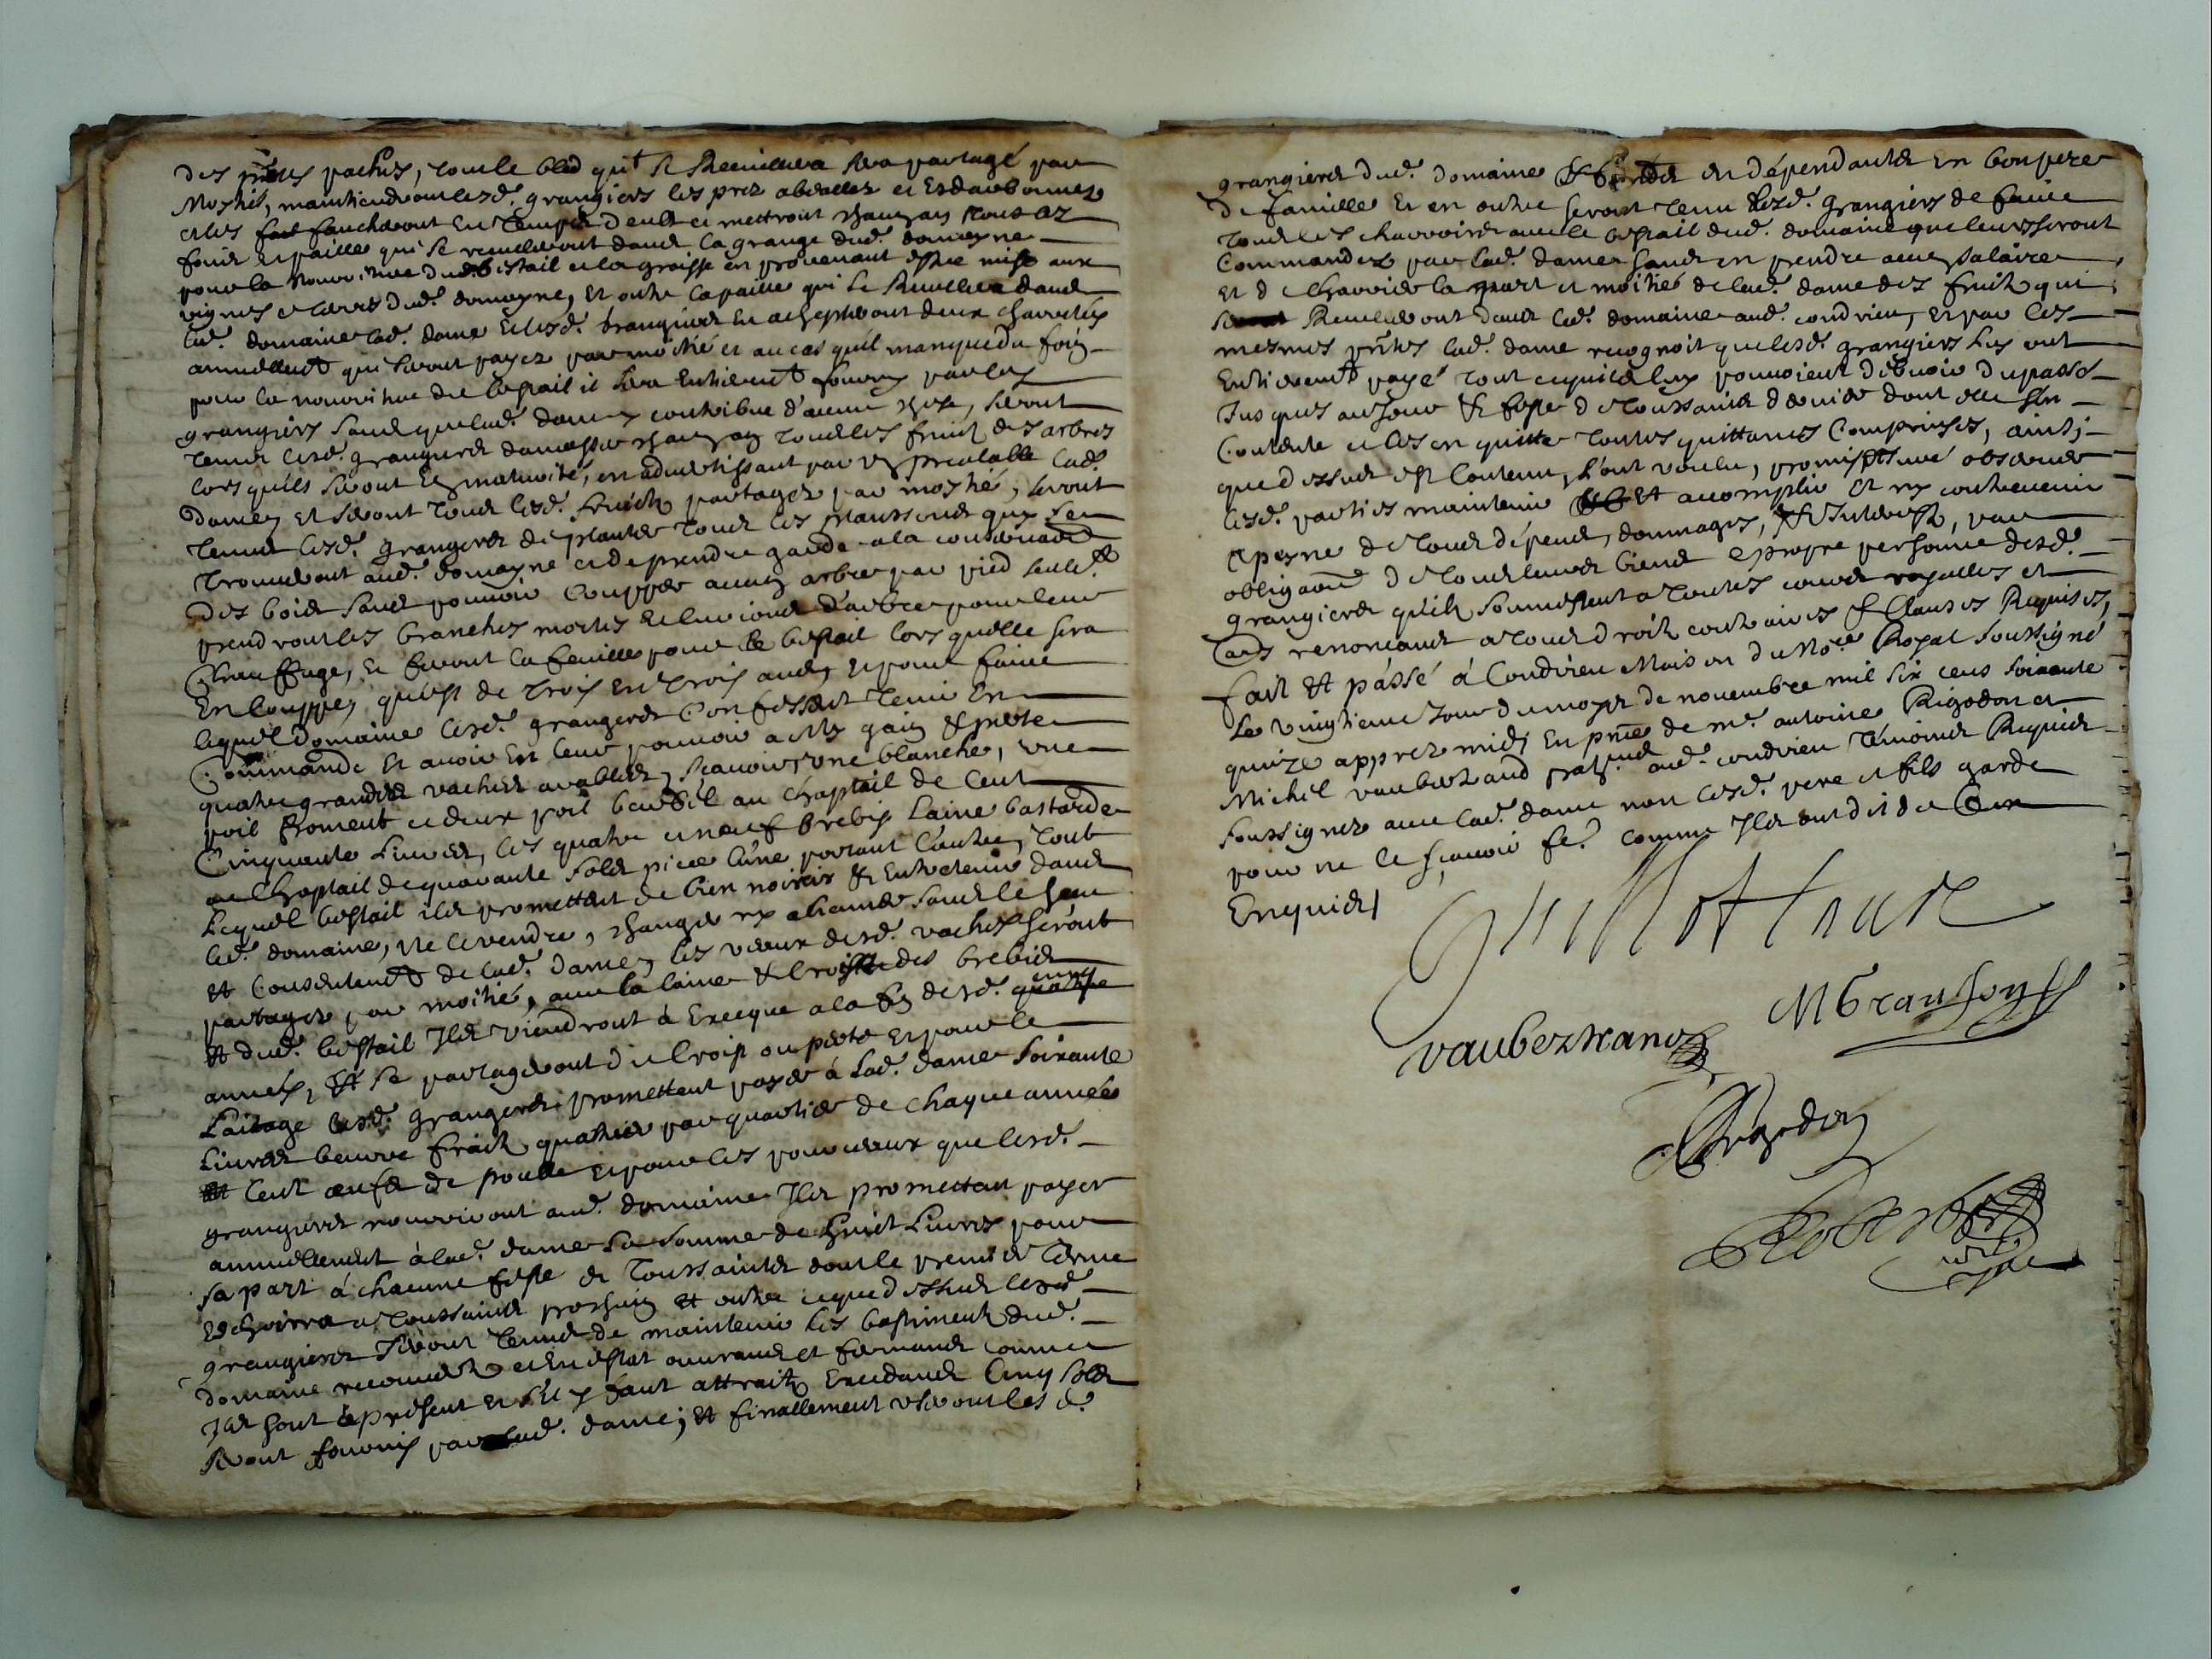 des pñtes paches, tout le bled quy se Recueillera sera partagé par
Moytié, maintiendront lesd. grangiers les prez abeallez et Esdarbonnez
et les faucheront En Temps d'eub et mettront chacun an Tous les
foins et pailles qui se recueilleront dans la grange dud. domayne
pour la Nourriture dud. bestail et la graisse en provenant estre mise aux
vignes et terres dud. domayne, Et outre la paille qui se Recueillera dans
led. domaine lad. dame et lesd. grangiers En achepteront deux charretées
annuellemt qui seront payez par moitié et au cas qu'il manque du foin
pour la nourriture du bestail il sera Entieremt fourny par les
grangiers sans que lad. dame y contribue d'aucune chose, seront
Tenus lesd. grangiers d'amasser chacun an Tous les fruits des arbres
lors qu'ils seront En maturité, en advertissant par un prealable lad.
dame, et seront Tous lesd. fruicts partagez par moytié, seront
Tenus lesd. grangers de planter Tous les plançons quy sen
Trouveront aud. domayne et de prendre garde a la conservaon
des bois sans pouvoir Coupper aucun arbre par pied seulemt
prendront les branches mortes et d'arbre pour leur
Chauffage, et feront la feuille pour le bestail lors quelle sera
En Couppe, qu'est de Trois En Trois ans, et pour faire
lequel domaine lesd. grangers Confessent Tenir En
Commande et avoir En leur pouvoir a My gain et perte
quatre grandes vaches arables, sçavoir une blanche, une
poil froment et deux poil barbel au Chaptail de Cent
Cinquante Livres, les quatre et neuf brebis Laine bastarde
au Chaptail de quarante solz piece l'une portant l'autre, Tout
Lequel bestail ils promettent de bien noirrir et Entretenir dans
led. domaine, ne le vendre, changer ny aliener sans le sceu
et Consentemt de lad. dame, les veaux desd. vaches seront
partagez par moitié, avec la laine et Croist des brebis
et dud. bestail Ils viendront à Execque a la fin desd. cinq
années, et se partageront du Croist ou perte et pour le
Laitage lesd. grangers promettent payer à Lad. dame soixante
Livres beurre fraich quartier par quartier de chaque année
et Cent œufs de poulle et pour les pourceaux que lesd.
grangers nourriront aud. domaine Ils promettent payer
annuellement à lad. dame la somme de huict Livres pour
sa part à chacune feste de Toussaints dont le premier Terme
Eschoirra a Toussaints prochain et outre ceque dessus lesd.
grangiers seront Tenus de maintenir les bastiments dud.
domaine recouverts et En estat ouvrants et fermants comme
Ils sont à present et s'il y faut attraits Excedants Cinq solz
seront fournis par lad. dame, et finallement useront lesd.
grangiers dud. domaine et fonds en dépendants en bon pere
de famille Et en outre seront Tenu lesd. grangiers de faire
Tous les charroirs avec le bestail dud. domaine que leurs seront
Commandez par lad. dame sans en prendre aucun salaire
et de charrier la part et moitié de lad. dame des fruits qui
se Recueilleront dans led. domaine aud. condrieu, et par les
mesmes pñtes lad. dame recognoit que lesd. grangiers Luy ont
Entieremt payé Tout ce qu'ils luy pouvoient debvoir du passé
Jusques au Jour et feste de Toussaints dernier dont elle sen
Contente et les en quitte Toutes quittances Comprinses, ainsi
que dessus est Contenu, L'ont voulu, promis et Juré observer
lesd. parties maintenir et accomplir et ny contrevenir
a peyne de Tous dépens, dommages, et Interests, par
obligaon de Tous leurs biens et propre personne desd.
grangiers qu'ils soumettent a Toutes cours royalles et
renonçants a Tous droits contraires et Clauses Requises,
fait et passé à Condrieu Maison du No.re Royal soussigné
Le vingtieme Jour du moys de novembre mil six cens soixante
quinze appres midi En pñce de me. antoine Rigodon et
Michel vaubertrand aud. condrieu Témoins Requis
soussignez avec lad. dame non lesd. pere et fils garde
pour ne le sçavoir fe. comme Ils ont dit de Ce
Enquis
vaubertrand
MGranjon
Rigodon